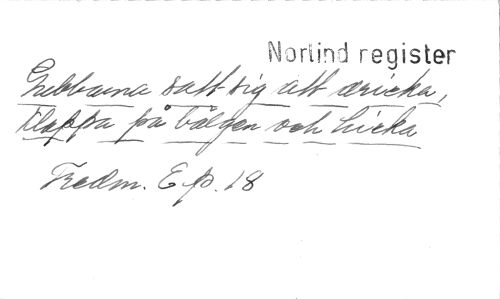 Norlind register
Gubbarna satt sig att dricka,
klappa på bälgen och hicka
Fredm. Ep. 18